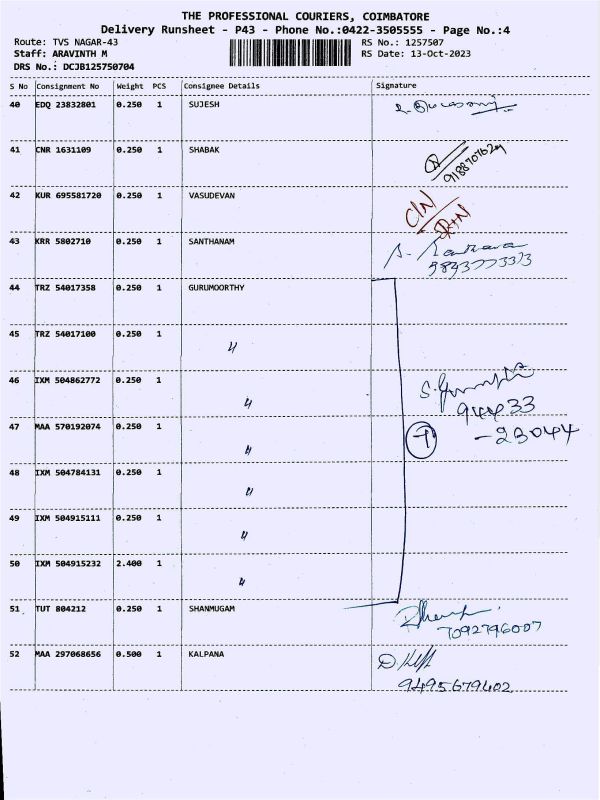 THE PROFESSIONAL COURIERS, COIMBATORE
Delivery Runsheet - P43 - Phone No.:0422-3505555 - Page No.:4
Route: TVS NAGAR-43 RS No.: 1257507
Staff: ARAVINTH M RS Date: 13-Oct-2023
DRS No.: DCJB125750704
S No Consignment No Weight PCS Consignee Details Signature
40 EDQ 23832801 0.250 1 SUJESH
41 CNR 1631109 0.250 1 SHABAK
42 KUR 695581720 0.250 1 VASUDEVAN C/N
43 KRR 5802710 0.250 1 SANTHANAM
44 TRZ 54017358 0.250 1 GURUMOORTHY
45 TRZ 54017100 0.250 1 "
46 IXM 504862772 0.250 1 "
94433
47 MAA 570192074 0.250 1 " -23044
48 IXM 504784131 0.250 1 "
49 IXM 504915111 0.250 1 "
50 IXM 504915232 2.400 1 "
51 TUT 804212 0.250 1 SHANMUGAM
7092796007
52 MAA 297068656 0.500 1 KALPANA
9495679402